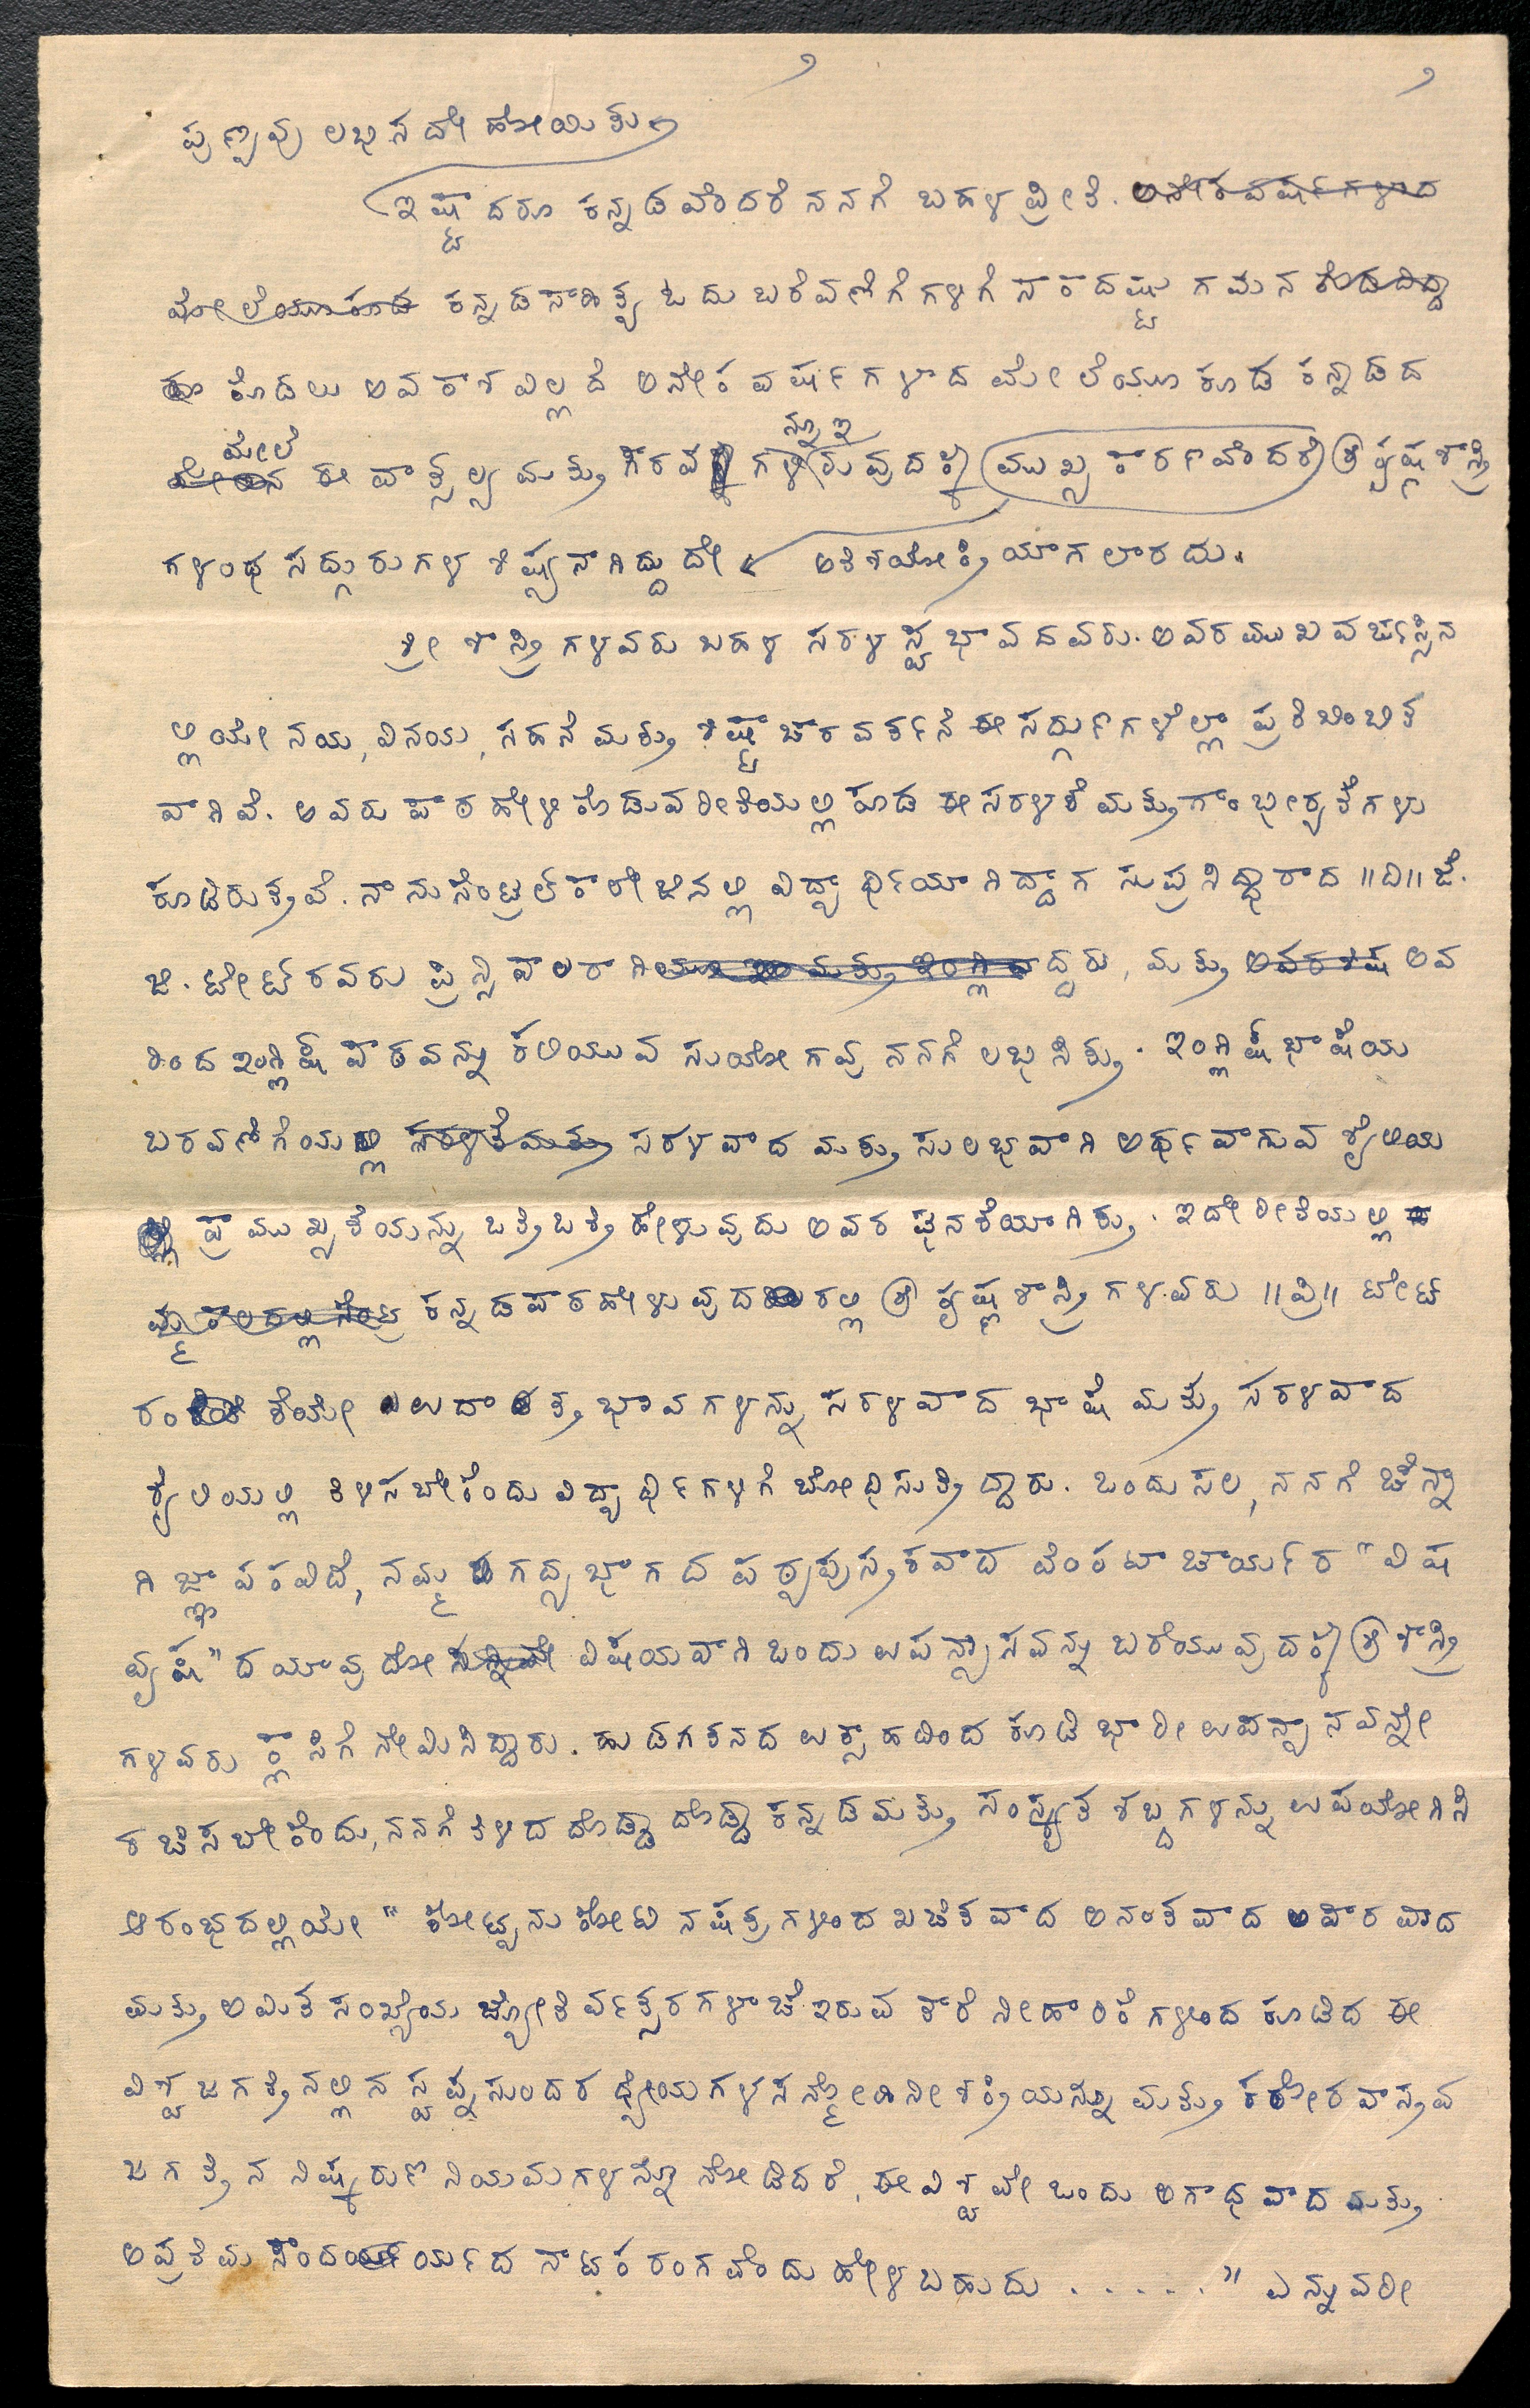 ೨ ೨
ಪುಣ್ಯವು ಲಭಿಸದೇ ಹೋಯಿತು
ಇಷ್ಟಾದರೂ ಕನ್ನಡವೆಂದರೆ ನನಗೆ ಬಹಳ ಪ್ರೀತಿ. ಅನೇಕ ವರ್ಷಗಳಾದ
ಮೇಲೆಯೂ ಕೂಡ ಕನ್ನಡ ಸಾಹಿತ್ಯ ಓದು ಬರೆವಣಿಗೆಗಳಿಗೆ ಸಾಕಾದಷ್ಟು ಗಮನ ಕೊಡದಿದ್ದಾ
ರೂ ಕೊಡಲು ಅವಕಾಶವಿಲ್ಲದೆ ಅನೇಕ ವರ್ಷಗಳಾದ ಮೇಲೆಯೂ ಕೂಡ ಕನ್ನಾಡದ
ಮೇಲೆ ನ್ನು ಇ
ಈ ವಾತ್ಸಲ್ಯ ಮತ್ತು ಗೌರವ ಗಳಿರುವುದಕ್ಕೆ ಮುಖ್ಯ ಕಾರಣವೆಂದರೆ ಶ್ರೀ ಕೃಷ್ಣಶಾಸ್ತ್ರಿ
ಗಳಂಥ ಸದ್ಗುರುಗಳ ಶಿಷ್ಯನಾಗಿದ್ದುದೇ ಅತಿಶಯೋಕ್ತಿಯಾಗಲಾರದು.
ಶ್ರೀ ಶಾಸ್ತ್ರಿಗಳವರು ಬಹಳ ಸರಳ ಸ್ವಭಾವದವರು. ಅವರ ಮುಖವರ್ಚಸ್ಸಿನ
ಲ್ಲಿಯೇ ನಯ, ವಿನಯ, ಸಹನೆ ಮತ್ತು ಶಿಷ್ಟಾಚಾರ ವರ್ತನೆ ಈ ಸದ್ಗುಣಗಳೆಲ್ಲಾ ಪ್ರತಿಬಿಂಬಿತ
ವಾಗಿವೆ. ಅವರು ಪಾಠ ಹೇಳಿಕೊಡುವ ರೀತಿಯಲ್ಲಿ ಕೂಡ ಈ ಸರಳತೆ ಮತ್ತು ಗಾಂಭೀರ್ಯತೆಗಳು
ಕೂಡಿರುತ್ತವೆ. ನಾನು ಸೆಂಟ್ರಲ್ ಕಾಲೇಜಿನಲ್ಲಿ ವಿದ್ಯಾರ್ಥಿಯಾಗಿದ್ದಾಗ ಸುಪ್ರಸಿದ್ಧಾರಾದ ||ದಿ|| ಜೆ.
ಜಿ. ಟೇಟ್ ರವರು ಪ್ರಿನ್ಸಿಪಾಲರಾಗಿದ್ದರು, ಮತ್ತು ಅವರ ಶಿಷ್ಯ ಅವ
ರಿಂದ ಇಂಗ್ಲಿಷ್ ಪಾಠವನ್ನು ಕಲಿಯುವ ಸುಯೋಗವು ನನಗೆ ಲಭಿಸಿತ್ತು. ಇಂಗ್ಲಿಷ್ ಭಾಷೆಯ
ಬರವಣಿಗೆಯಲ್ಲಿ ಸರಳತೆ ಮತ್ತು ಸರಳವಾದ ಮತ್ತು ಸುಲಭವಾಗಿ ಅರ್ಥವಾಗುವ ಶೈಲಿಯ
ಪ್ರಾಮುಖ್ಯತೆಯನ್ನು ಒತ್ತಿ ಒತ್ತಿ ಹೇಳುವುದು ಅವರ ಘನತೆಯಾಗಿತ್ತು. ಇದೇ ರೀತಿಯಲ್ಲಿ
ಕನ್ನಡ ಪಾಠ ಹೇಳುವುದರಲ್ಲಿ ಶ್ರೀ ಕೃಷ್ಣಶಾಸ್ತ್ರಿಗಳವರು ||ಪ್ರಿ|| ಟೇಟ್
ರಂತೆಯೇ ಉದಾತ್ತ ಭಾವಗಳನ್ನು ಸರಳವಾದ ಭಾಷೆ ಮತ್ತು ಸರಳವಾದ
ಶೈಲಿಯಲ್ಲಿ ತಿಳಿಸಬೇಕೆಂದು ವಿದ್ಯಾರ್ಥಿಗಳಿಗೆ ಬೋಧಿಸುತ್ತಿದ್ದಾರು. ಒಂದು ಸಲ, ನನಗೆ ಚೆನ್ನಾ
ಗಿ ಜ್ಞಾಪಕವಿದೆ, ನಮ್ಮ ಗದ್ಯಭಾಗದ ಪಠ್ಯಪುಸ್ತಕವಾದ ವೆಂಕಟಾಚಾರ್ಯರ "ವಿಷ
ವೃಕ್ಷ"ದ ಯಾವುದೋ ವಿಷಯವಾಗಿ ಒಂದು ಉಪನ್ಯಾಸವನ್ನು ಬರೆಯುವುದಕ್ಕೆ ಶ್ರೀ ಶಾಸ್ತ್ರಿ
ಗಳವರು ಕ್ಲಾಸಿಗೆ ನೇಮಿಸಿದ್ದಾರು. ಹುಡಗತನದ ಉತ್ಸಾಹದಿಂದ ಕೂಡಿ ಭಾರೀ ಉಪನ್ಯಾಸವನ್ನೇ
ರಚಿಸಬೇಕೆಂದು, ನನಗೆ ತಿಳಿದ ದೊಡ್ಡಾ ದೊಡ್ಡಾ ಕನ್ನಡ ಮತ್ತು ಸಂಸ್ಕೃತ ಶಬ್ದಗಳನ್ನು ಉಪಯೋಗಿಸಿ
ಆರಂಭದಲ್ಲಿಯೇ "ಕೋಟ್ಯನುಕೋಟಿ ನಕ್ಷತ್ರಗಳಿಂದ ಖಚಿತವಾದ ಅನಂತವಾದ ಅಪಾರವಾದ
ಮತ್ತು ಅಮಿತ ಸಂಖ್ಯೆಯ ಜ್ಯೋತಿರ್ವತ್ಸರಗಳಾಚೆ ಇರುವ ತಾರೆ ನೀಹಾರಿಕೆಗಳಿಂದ ಕೂಡಿದ ಈ
ವಿಶ್ವ ಜಗತ್ತಿನಲ್ಲಿನ ಸ್ವಪ್ನಸುಂದರ ಧ್ಯೇಯಗಳ ಸನ್ಮೋಹಿನೀ ಶಕ್ತಿಯನ್ನೂ ಮತ್ತು ಕಠೋರ ವಾಸ್ತವ
ಜಗತ್ತಿನ ನಿಷ್ಕರುಣ ನಿಯಮಗಳನ್ನೂ ನೋಡಿದರೆ, ಈ ವಿಶ್ವವೇ ಒಂದು ಅಗಾಧವಾದ ಮತ್ತು
ಅಪ್ರತಿಮ ಸೌಂದರ್ಯದ ನಾಟಕ ರಂಗವೆಂದು ಹೇಳಬಹುದು . . . . ." ಎನ್ನುವ ರೀ